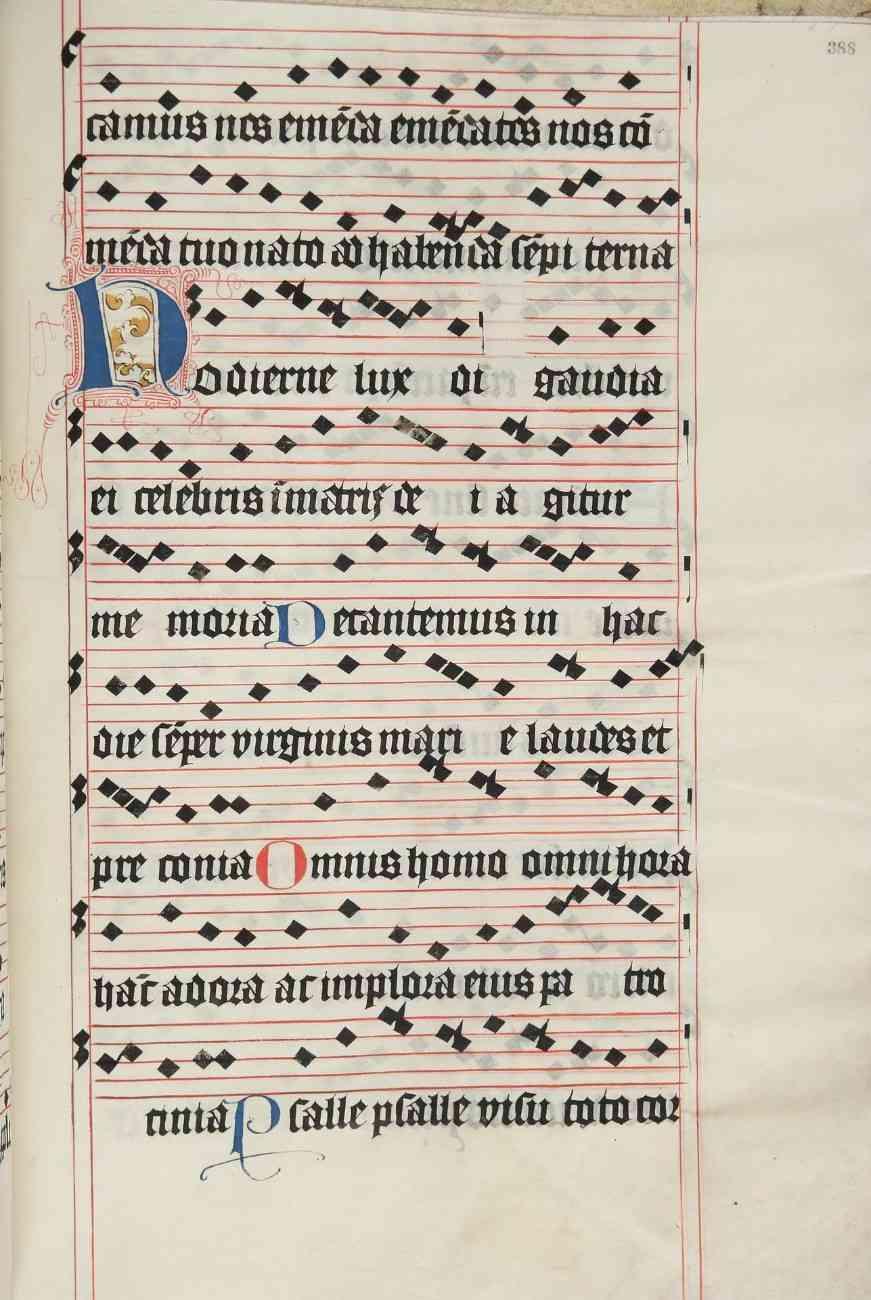 388
camus nos emēda emēdatos nos cō
mēda tuo nato ad habenda sēpi terna
Hodierne lux di gaudia
ei celebris ī matris de i a gitur
me moria Decantemus in hac
die sēper virginis mari e laudes et
pre conia Omnis homo omni hora
hāc adora ac implora eius pa tro
cinia Psalle psalle visu toto cor